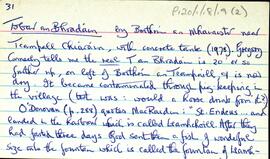 31
P120/1/8/9 (2)
Tobar an Bhradáin by Bóthrín an Mhainistir near
Teampall Chiaráin, with concrete tank (1973). Gregory
Conneely tells me the real T an Bhradáin is 20' or so
further up, on left of Bóthrín an Teampaill, & is now
dry. It became contaminated through pigs keeping in
the village (tob was: would a horse drink from it?)
O'Donovan (p. 258) quotes MacRaidin: "St. Endeus and
landed in the harbour which is called Leamhchoill. After they
had fasted three days God sent them a fish of wonderful
size into the fountain which is called the fountain of Leamh-